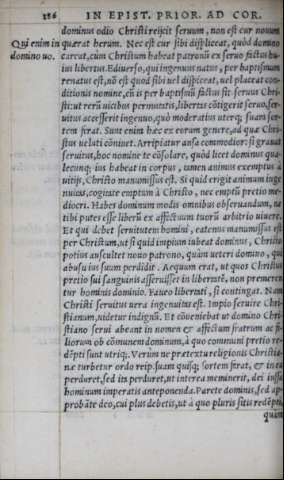 186 IN EPIST. PRIOR. AD COR.
dominus odio Christi reijcit seruum, non est cur nouum
Qui enim in quærat herum. Nec est cur sibi displiceat, quòd domino
domino uo. careat, cùm Christum habeat patronũ ex seruo factus hu
ius libertus. E diuerso, qui ingenuus natus, per baptismum
renatus est, nõ est quòd sibi uel displiceat, uel placeat con-
ditionis nomine, cũ is per baptismũ factus sit seruus Chri
sti: ut rerũ uicibus permutatis, libertas cõtigerit seruo, ser-
uitus accesserit ingenuo, quò moderatius uterq; suam sor-
tem ferat. Sunt enim hæc ex eorum genere, ad quæ Chri-
stus ueluti conniuet. Arripiat ansã commodior: si grauat
seruitus, hoc nomine te cõsolare, quòd licet dominus qua-
lecunq; ius habeat in corpus, tamen animũ exemptus à
uitijs, Christo manumissus est. Si quid erigit animum inge
nuitas, cogitate emptum à Christo, nec emptũ pretio me-
diocri. Habes dominum modis omnibus obseruandum, ne
tibi putes esse liberũ ex affectuum tuorũ arbitrio uiuere.
Et qui debet seruitutem homini, eatenus manumissus est
per Christum, ut si quid impium iubeat dominus, Christo
potius auscultet nouo patrono, quàm ueteri domino, qui
abusu ius suum perdidit. Aequum erat, ut quos Christus
pretio sui sanguinis asseruisset in libertatẽ, non premeren
tur hominis dominio. Faueo libertati, si contingat. Nam
Christi seruitus uera ingenuitas est. Impio seruire Chri-
stianum, uidetur indignũ. Et cõueniebat ut domino Chri
stiano serui abeant in nomen & affectum fratrum ac fi-
liorum ob cõmunem dominum, à quo communi pretio re-
dẽpti sunt utriq;. Verùm ne prætextu religionis Christia-
næ turbetur ordo reip. suam quisq; sortem ferat, & in ea
perduret, sed ita perduret, ut interea meminerit, dei iussa
hominum imperatis anteponenda. Parete dominis, sed ap-
probãte deo, cui plus debetis, ut à quo pluris sitis redẽpti,
quàm